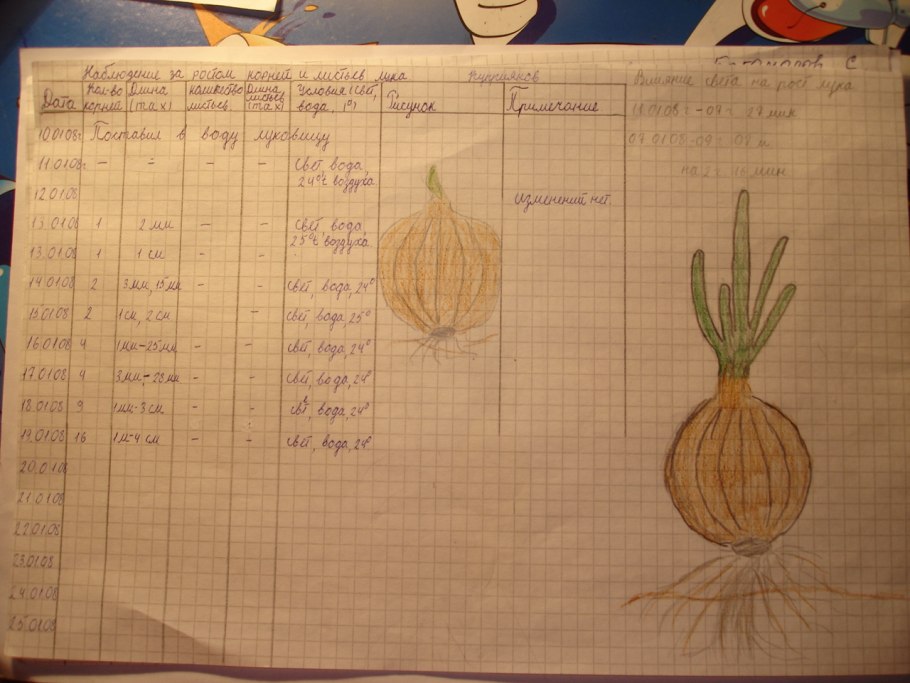 Наблюдение за ростом корней и листьев лука
Влияние света на рост лука
Дата Кол-во корней Длина (max) количество листьев Длина листьев (max) Условия (свет, вода, t°) Рисунок Примечание
11.01.08г. -09ч 27 мин
07.01.08г. -09ч
на 2ч 16 мин
10.01.08г. Поставил в воду луковицу
11.01.08г. - - - - свет, вода, 24°t воздуха
12.01.08 изменений нет
13.01.08 1 2 мм - - свет, вода, 25°t воздуха
13.01.08 1 1 см - -
14.01.08 2 3мм, 15мм - - свет, вода, 24°
15.01.08 2 1см, 2 см - свет, вода, 25°
16.01.08 4 1мм-25мм - - свет, вода, 24°
17.01.08 4 3мм-28мм - - свет, вода, 24°
18.01.08 9 1мм-3 см - - свет, вода, 24°
19.01.08 16 1м-4 см - - свет, вода, 24°
20.01.08
21.01.08
22.01.08
23.01.08
24.01.08
25.01.08